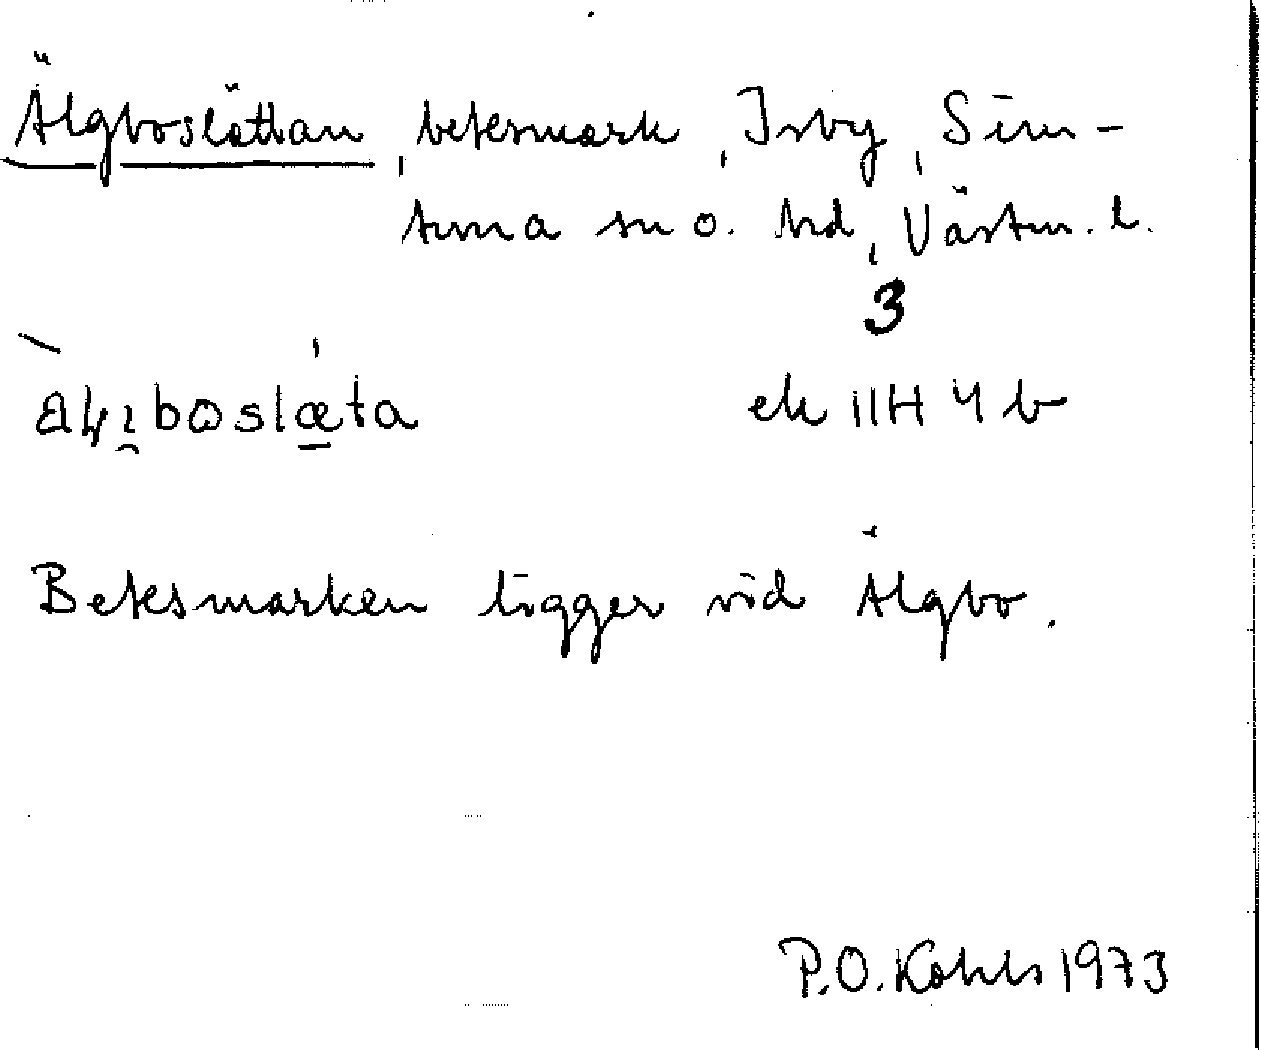 Älgboslättan, betesmark, Isby, Sim-
tuna sn o. hd, Västm. l.
3
ek 11H 4 b
Betesmarken ligger vid Älgbo.
P.O. Kohls 1973